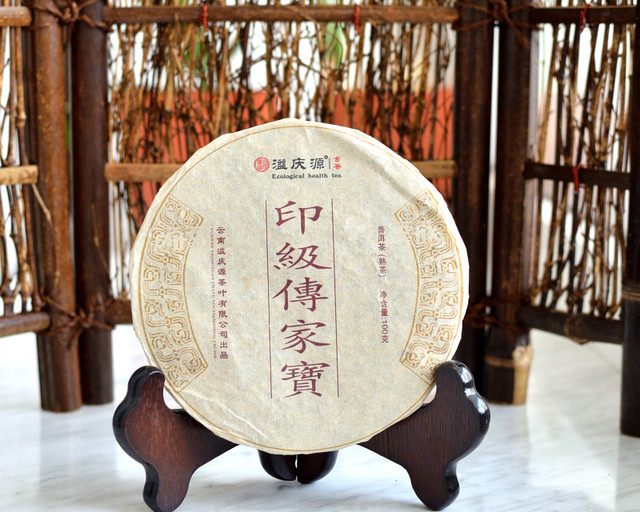 溢庆源® 古茶
Ecological health tea
印級傳家寶
普洱茶（熟茶） 净含量:100克
云南溢庆源茶叶有限公司出品